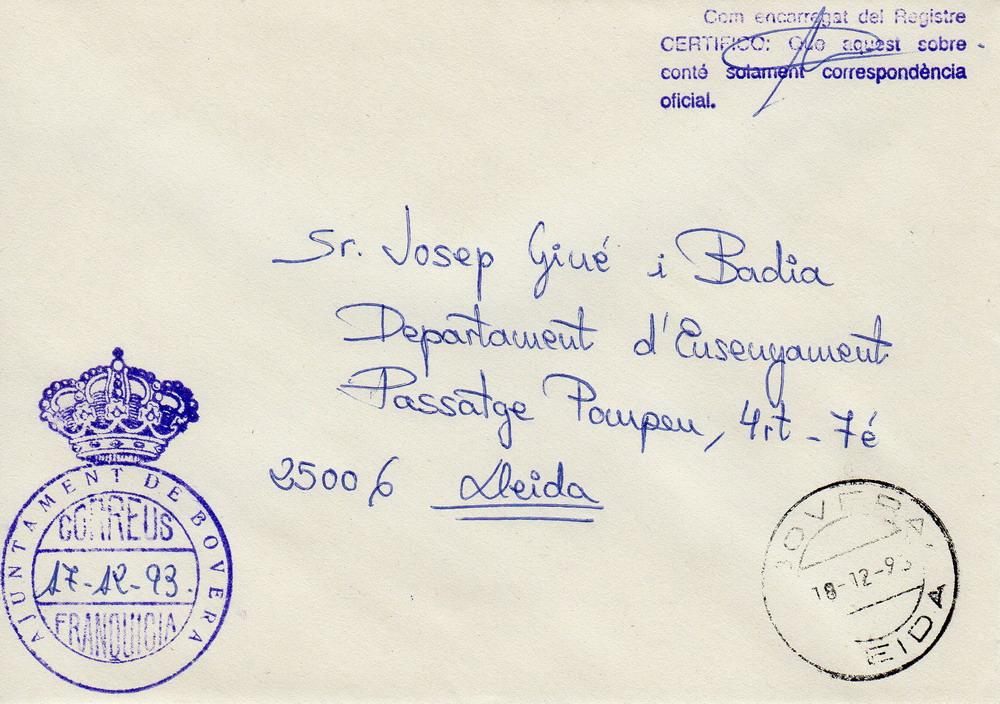 Com encarregat del Registre
CERTIFICO: Que aquest sobre
conté solament correspondència
oficial.
Sr. Josep Giné i Badia
Departament d'Ensenyament
Passatge Pompeu, 4rt - 7é
25006 Lleida
AJUNTAMENT DE BOVERA
CORREUS
17-12-93.
FRANQUICIA
BOVERA
18-12-93
EIDA